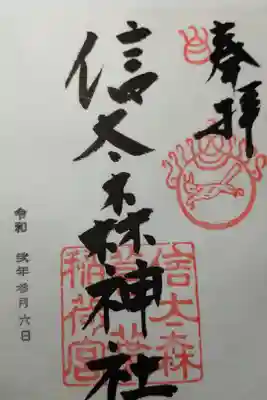 奉拝
信太森神社
信太森
葛葉
稲荷宮
令和 弐年 参月 六日